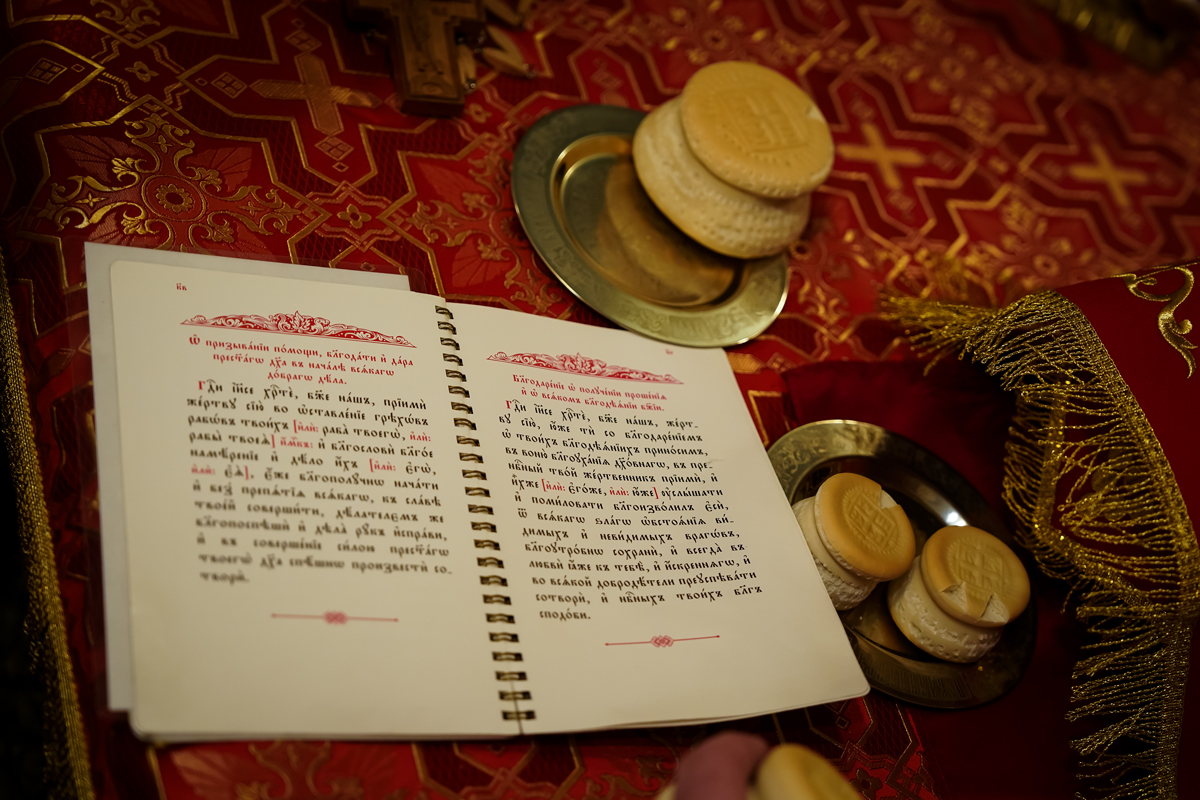 к҃в
Ѡ҆ призыва́нїи по́мощи, бл҃года́ти и҆ да́ра
прест҃а́гѡ дх҃а въ нача́лѣ всѧ́кагѡ
до́брагѡ дѣ́ла.
Гдⷭ҇и і҆и҃се хрⷭ҇тѐ, бж҃е на́шъ, прїимѝ
же́ртву сїю̀ во ѡ҆ставле́нїе грѣхѡ́въ
рабѡ́въ твои́хъ [и҆лѝ: раба̀ твоегѡ̀, и҆лѝ:
рабы̀ твоеѧ̀] и҆́мⷬ҇къ: и҆ бл҃гословѝ бл҃го́е
намѣ́ренїе и҆ дѣ́ло и҆́хъ [и҆лѝ: є҆гѡ̀,
и҆лѝ: є҆ѧ̀], є҆́же бл҃гополу́чнѡ нача́ти
и҆ без̾ препѧ́тїѧ всѧ́кагѡ, къ сла́вѣ
твое́й соверши́ти, дѣ́лателємъ же
бл҃гопоспѣшѝ и҆ дѣла̀ рꙋ́къ и҆спра́ви,
и҆ въ соверше́нїе си́лою прест҃а́гѡ
твоегѡ̀ дх҃а спѣ́шнѡ произвестѝ со-
творѝ.
Благодаре́нїе ѡ҆ полꙋче́нїи проше́нїѧ
и҆ ѡ҆ всѧ́комъ бл҃годѣѧ́нїи бж҃їи.
Гдⷭ҇и і҆и҃се хрⷭ҇тѐ, бж҃е на́шъ, же́рт-
вꙋ сїю̀, ю҆́же тѝ со бл҃годаре́нїемъ
ѡ҆ твои́хъ бл҃годѣѧ́нїихъ прино́симъ,
въ воню̀ бл҃гоꙋха́нїѧ дꙋхо́внагѡ, въ пре-
нбⷭ҇ный твой же́ртвенникъ прїимѝ, и҆
и҆̀хже [и҆лѝ: є҆го́же, и҆лѝ: ю҆́же] ᲂу҆слы́шати
и҆ поми́ловати бл҃гоизво́лилъ є҆сѝ,
ѿ всѧ́кагѡ ѕла́гѡ ѡ҆бстоѧ́нїѧ ви́-
димыхъ и҆ неви́димыхъ врагѡ́въ,
бл҃гоꙋтро́бнѡ сохранѝ, и҆ всегда̀ въ
любвѝ ꙗ҆́же къ тебѣ̀, и҆ и҆́скреннѧгѡ, и҆
во всѧ́кой добродѣ́тели преꙋспѣва́ти
сотворѝ, и҆ нбⷭ҇ныхъ твои́хъ бл҃гъ
сподо́би.